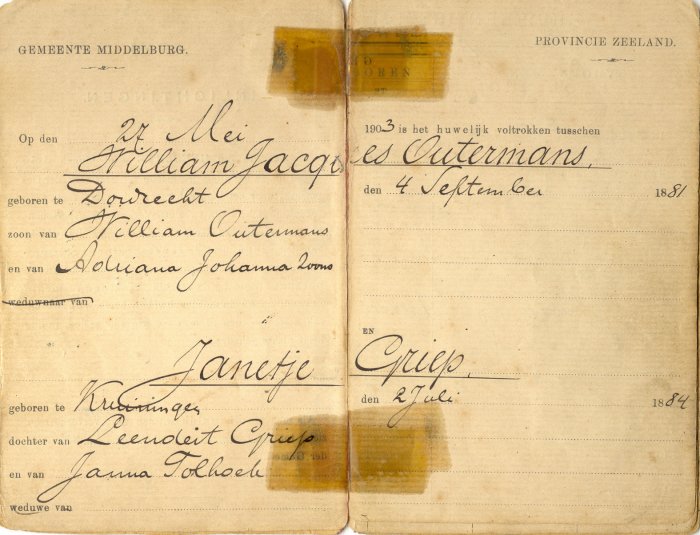 GEMEENTE MIDDELBURG. PROVINCIE ZEELAND.
Op den 27 Mei 1903 is het huwelijk voltrokken tusschen
William Jacques Outermans,
geboren te Dordrecht den 4 September 1881
zoon van William Outermans
en van Adriana Johanna Zoons
weduwnaar van
EN
Janetje Griep.
geboren te Kruiningen den 2 Juli 1884
dochter van Leendert Griep
en van Janna Tolhoek
weduwe van